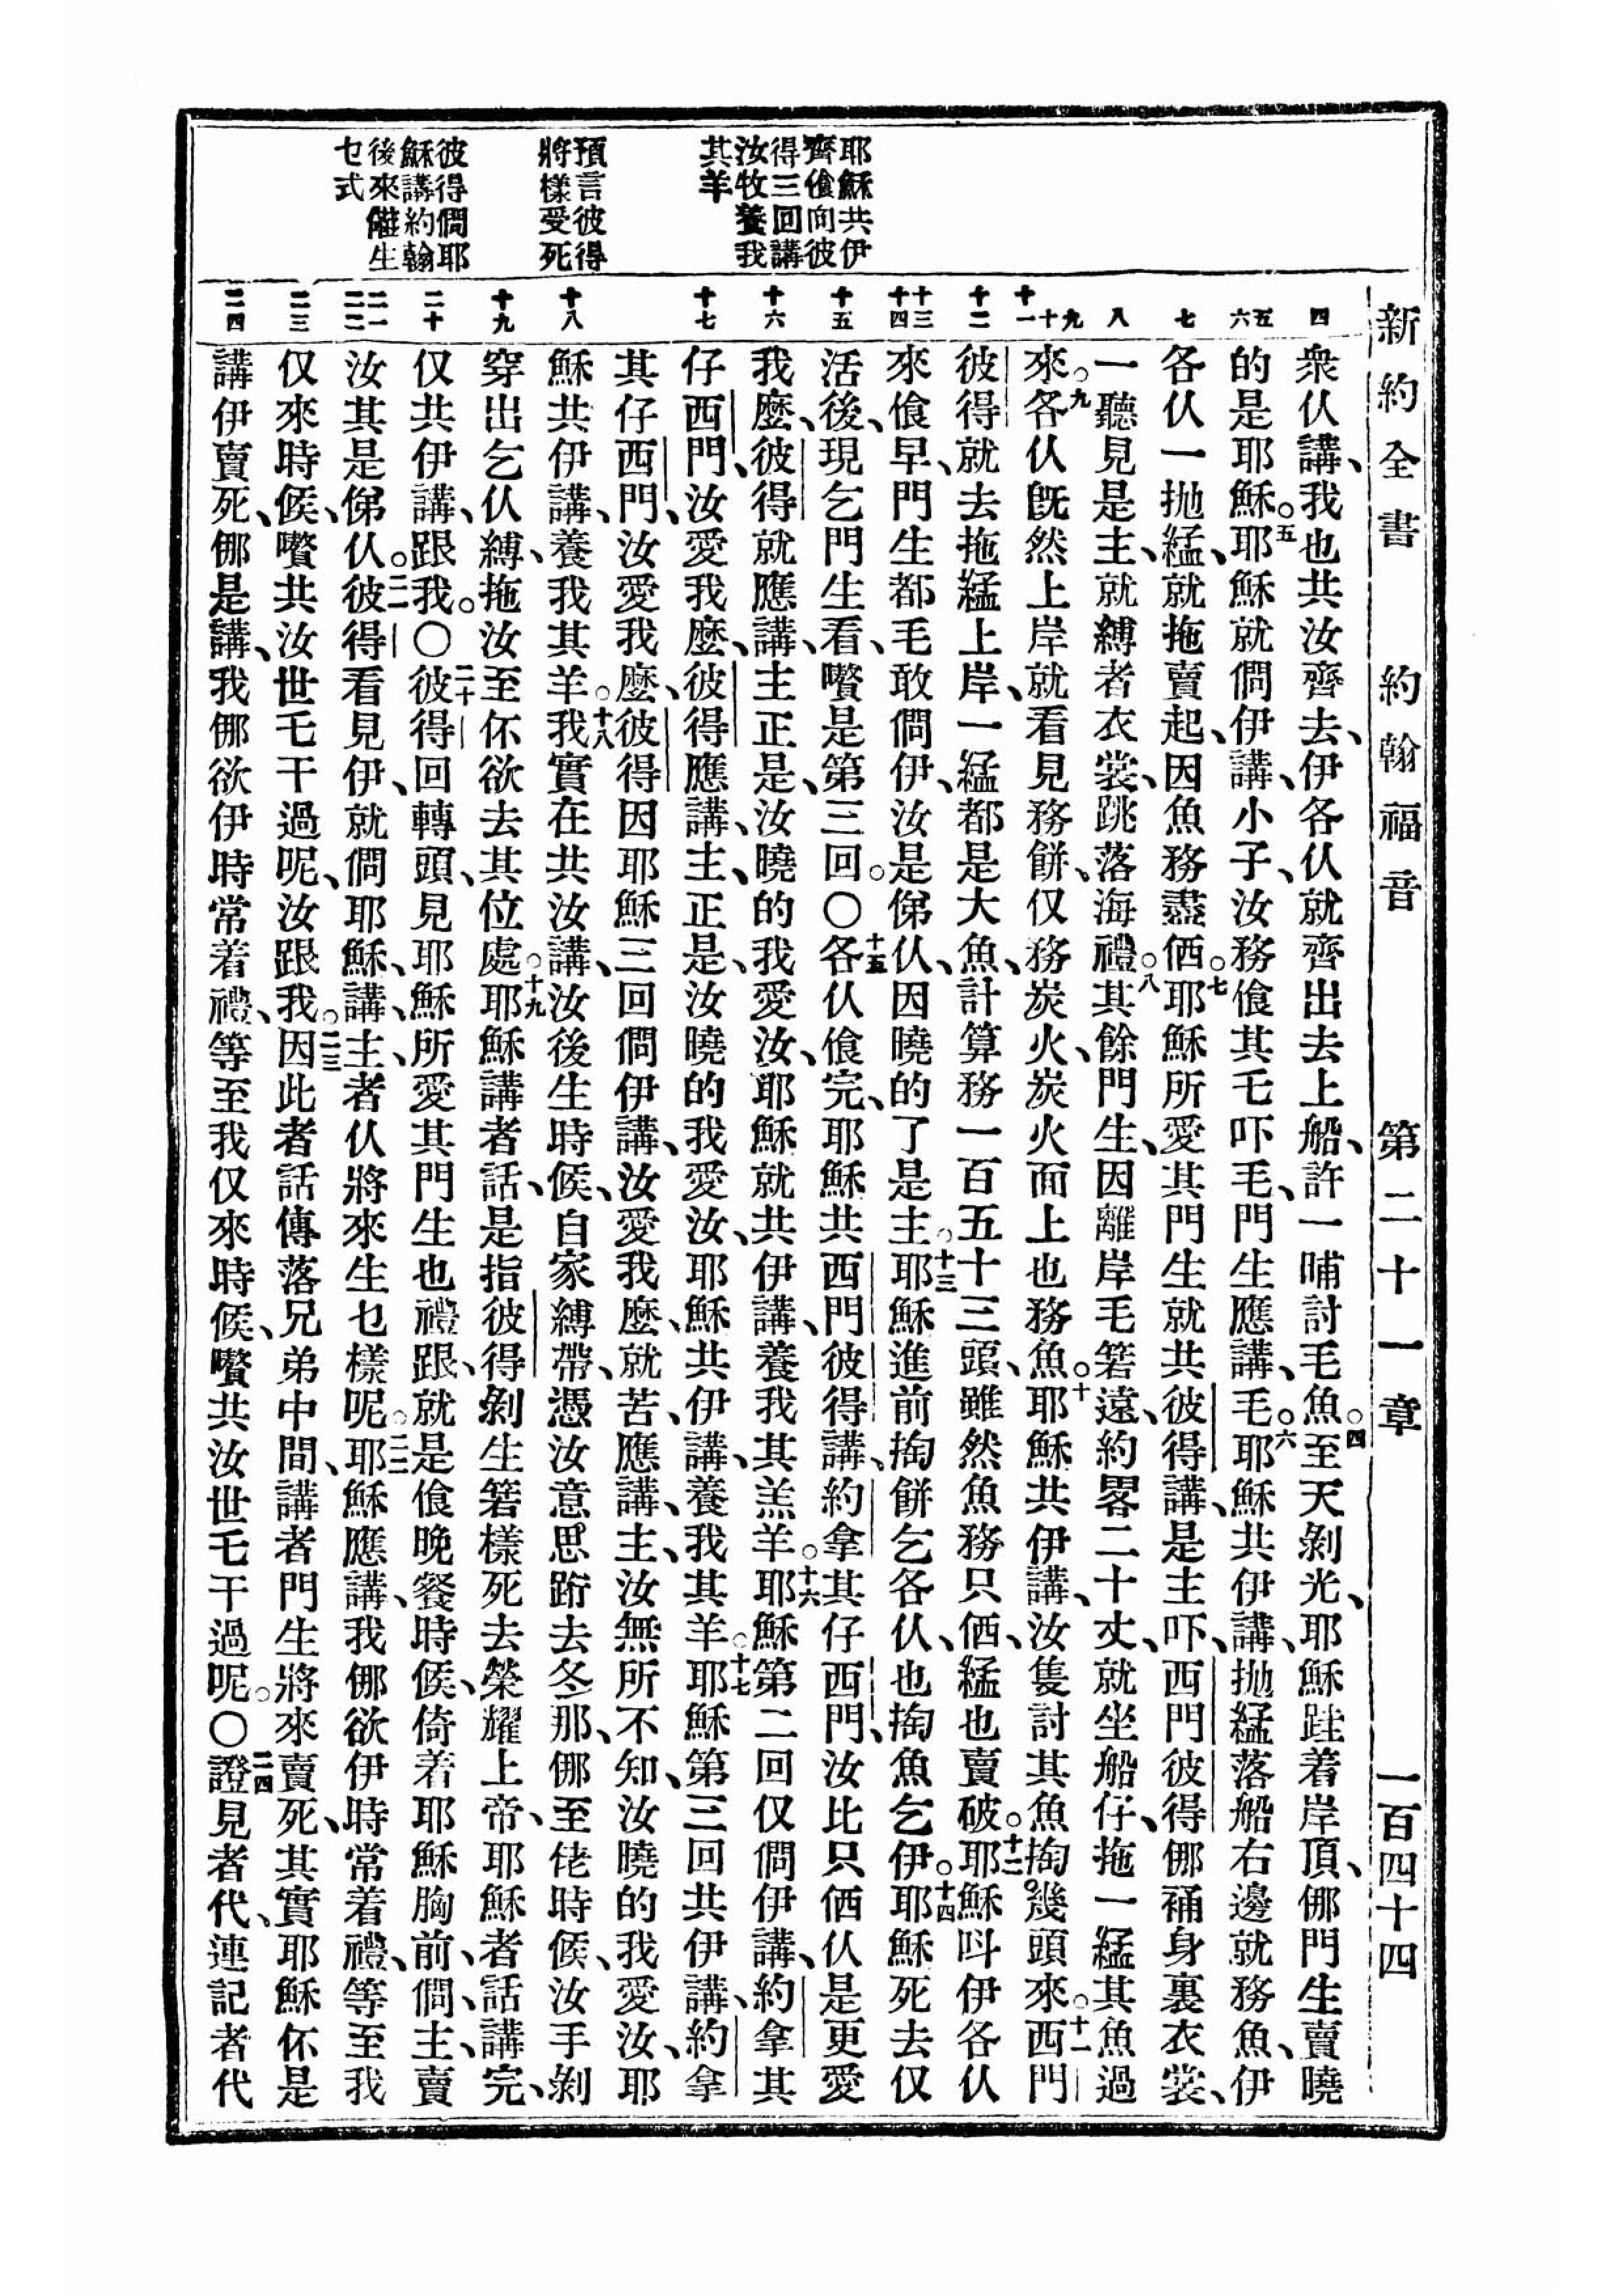 新約全書 約翰福音 第二十一章 一百四十四
耶穌共伊
齊飧向彼
得三回講
汝牧養我
其羊
預言彼得
將樣受死
彼得問耶
穌講約翰
後來儺生
乜式
四
五
六
七
八
九
十
十一
十二
十三
十四
十五
十六
十七
十八
十九
二十
二一
二二
二三
二四
衆仈講、我也共汝齊去、伊各仈就齊出去上船、許一晡討毛魚。四至天剝光、耶穌跬着岸頂、倻門生賣曉
的是耶穌。五耶穌就問伊講、小子、汝務飧其乇吓毛、門生應講、毛。六耶穌共伊講、抛緼落船右邊就務魚、伊
各仈一抛緼、就拖賣起、因魚務盡価。七耶穌所愛其門生就共彼得講、是主吓、西門彼得倻裲身裏衣裳、
一聽見是主、就縛者衣裳、跳落海禮。八其餘門生、因離岸毛箬遠、約畧二十丈、就坐船仔、拖一緼其魚過
來。九各仈旣然上岸就看見務餅、仅務炭火、炭火面上也務魚。十耶穌共伊講、汝隻討其魚掏幾頭來。十一西門
彼得就去拖緼上岸、一緼都是大魚、計算務一百五十三頭、雖然魚務只価、緼也賣破。十二耶穌呌伊各仈
來飧早、門生都毛敢問伊、汝是俤仈、因曉的了是主。十三耶穌進前掏餅乞各仈、也掏魚乞伊。十四耶穌死去仅
活後、現乞門生看、囋是第三回。〇十五各仈飧完、耶穌共西門彼得講、約拿其仔西門、汝比只価仈是更愛
我麽、彼得就應講、主正是、汝曉的我愛汝、耶穌就共伊講、養我其羔羊。十六耶穌第二回仅問伊講、約拿其
仔西門、汝愛我麽、彼得應講、主、正是、汝曉的我愛汝、耶穌共伊講、養我其羊。十七耶穌第三回共伊講、約拿
其仔西門、汝愛我麽、彼得因耶穌三回問伊講、汝愛我麽、就苦、應講、主、汝無所不知、汝曉的我愛汝、耶
穌共伊講、養我其羊。十八我實在共汝講、汝後生時候、自家縛帶、憑汝意思跲去冬那、倻至佬時候、汝手剝
穿出乞仈縛、拖汝至伓欲去其位處。十九耶穌講者話、是指彼得剝生箬樣死去榮耀上帝、耶穌者話講完、
仅共伊講、跟我。〇二十彼得回轉頭、見耶穌所愛其門生也禮跟、就是飧晚餐時候、倚着耶穌胸前、問、主、賣
汝其是俤仈。二一彼得看見伊、就問耶穌、講、主、者仈將來生乜樣呢。二二耶穌應講、我倻欲伊時常着禮、等至我
仅來時候、囋共汝世乇干過呢、汝跟我。二三因此者話傳落兄弟中間、講者門生將來賣死、其實耶穌伓是
講伊賣死、倻是講、我倻欲伊時常着禮、等至我仅來時候、囋共汝世乇干過呢。〇二四證見者代、連記者代